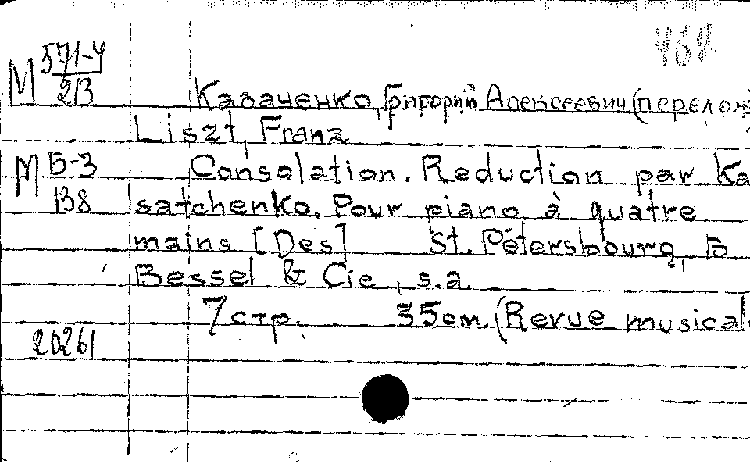 М 571-4
2/3
Казаченко, Григорий Алексеевич (перелож
Liszt, Franz
М Б-3
138
Consolation. Reduction par Ka
satchenko. Pour piano à quatre
mains [Des] St. Pétersbourg, B
Bessel & Cie, s.a.
7 стр. 35 см. (Revue musical
20261